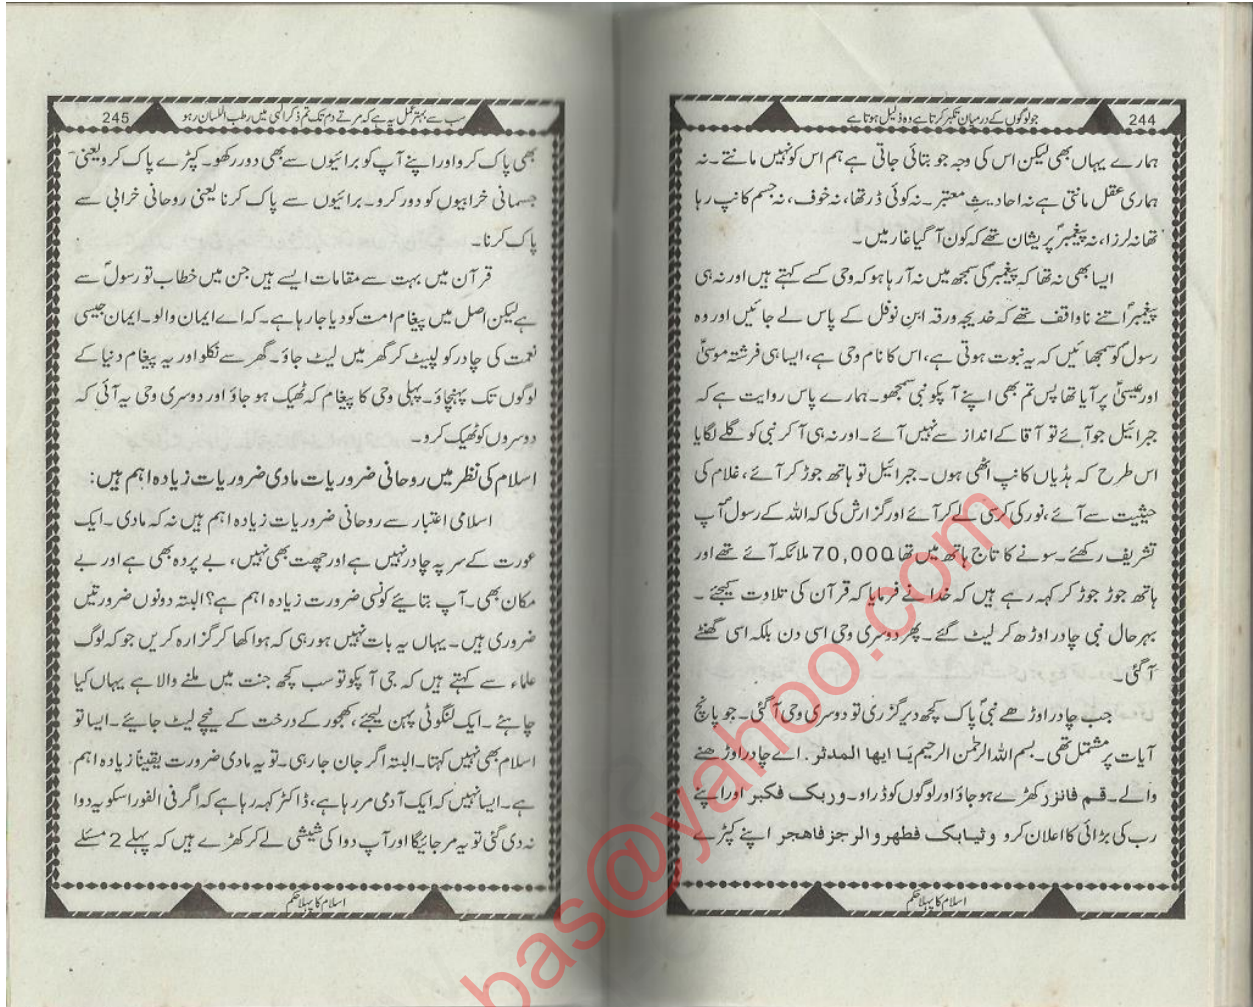 244
جو لوگوں کے درمیان تکبر کرتا ہے وہ ذلیل ہوتا ہے
ہمارے یہاں بھی لیکن اس کی وجہ جو بتائی جاتی ہے ہم اس کو نہیں مانتے۔ نہ
ہماری عقل مانتی ہے نہ احادیثِ معتبر۔ نہ کوئی ڈر تھا، نہ خوف، نہ جسم کانپ رہا
تھا نہ لرزا، نہ پیغمبرؐ پریشان تھے کہ کون آ گیا غار میں۔
ایسا بھی نہ تھا کہ پیغمبرؐ کی سمجھ میں نہ آ رہا ہو کہ وحی کسے کہتے ہیں اور نہ ہی
پیغمبرؐ اتنے ناواقف تھے کہ خدیجہ ورقہ ابنِ نوفل کے پاس لے جائیں اور وہ
رسول کو سمجھائیں کہ یہ نبوت ہوتی ہے، اس کا نام وحی ہے، ایسا ہی فرشتہ موسیٰؑ
اور عیسیٰؑ پر آیا تھا پس تم بھی اپنے آپکو نبی سمجھو۔ ہمارے پاس روایت ہے کہ
جبرائیل جو آئے تو آقا کے انداز سے نہیں آئے۔ اور نہ ہی آ کر نبی کو گلے لگایا
اس طرح کہ ہڈیاں کانپ اٹھی ہوں۔ جبرائیل تو ہاتھ جوڑ کر آئے، غلام کی
حیثیت سے آئے، نور کی کرسی لے کر آئے اور گزارش کی کہ اللہ کے رسولؐ آپ
تشریف رکھئے۔ سونے کا تاج ہاتھ میں تھا 70,000 ملائکہ آئے تھے اور
ہاتھ جوڑ جوڑ کر کہہ رہے ہیں کہ خدا نے فرمایا کہ قرآن کی تلاوت کیجئے۔
بہرحال نبی چادر اوڑھ کر لیٹ گئے۔ پھر دوسری وحی اسی دن بلکہ اسی گھنٹے
آ گئی۔
جب چادر اوڑھے نبیؐ پاک کچھ دیر گزری تو دوسری وحی آ گئی۔ جو پانچ
آیات پر مشتمل تھی۔ بسم اللہ الرحمٰن الرحیم یٓا ایھا المدثر۔ اے چادر اوڑھنے
والے۔ قم فانزر کھڑے ہو جاؤ اور لوگوں کو ڈراو۔ وربک فکبر اور اپنے
رب کی بڑائی کا اعلان کرو وثیابک فطھر والرجز فاھجر اپنے کپڑے
اسلام کا پہلا حکم
245
سب سے بہتر عمل یہ ہے کہ مرتے دم تک تم ذکر الٰہی میں رطب اللسان رہو
بھی پاک کرو اور اپنے آپ کو برائیوں سے بھی دور رکھو۔ کپڑے پاک کرو یعنی
جسمانی خرابیوں کو دور کرو۔ برائیوں سے پاک کرنا یعنی روحانی خرابی سے
پاک کرنا۔
قرآن میں بہت سے مقامات ایسے ہیں جن میں خطاب تو رسولؐ سے
ہے لیکن اصل میں پیغام امت کو دیا جا رہا ہے۔ کہ اے ایمان والو۔ ایمان جیسی
نعمت کی چادر کو لپیٹ کر گھر میں لیٹ جاؤ۔ گھر سے نکلو اور یہ پیغام دنیا کے
لوگوں تک پہنچاؤ۔ پہلی وحی کا پیغام کہ ٹھیک ہو جاؤ اور دوسری وحی یہ آئی کہ
دوسروں کو ٹھیک کرو۔
اسلام کی نظر میں روحانی ضروریات مادی ضروریات زیادہ اہم ہیں:
اسلامی اعتبار سے روحانی ضروریات زیادہ اہم ہیں نہ کہ مادی۔ ایک
عورت کے سر پہ چادر نہیں ہے اور چھت بھی نہیں، بے پردہ بھی ہے اور بے
مکان بھی۔ آپ بتائیے کونسی ضرورت زیادہ اہم ہے؟ البتہ دونوں ضرورتیں
ضروری ہیں۔ یہاں یہ بات نہیں ہو رہی کہ ہوا کھا کر گزارہ کریں جو کہ لوگ
علماء سے کہتے ہیں کہ جی آپکو تو سب کچھ جنت میں ملنے والا ہے یہاں کیا
چاہئے۔ ایک لنگوٹی پہن لیجئے، کھجور کے درخت کے نیچے لیٹ جائیے۔ ایسا تو
اسلام بھی نہیں کہتا۔ البتہ اگر جان جا رہی۔ تو یہ مادی ضرورت یقیناً زیادہ اہم
ہے۔ ایسا نہیں کہ ایک آدمی مر رہا ہے، ڈاکٹر کہہ رہا ہے کہ اگر فی الفور اسکو یہ دوا
نہ دی گئی تو یہ مر جائیگا اور آپ دوا کی شیشی لے کر کھڑے ہیں کہ پہلے 2 مسئلے
اسلام کا پہلا حکم
bas@yahoo.com